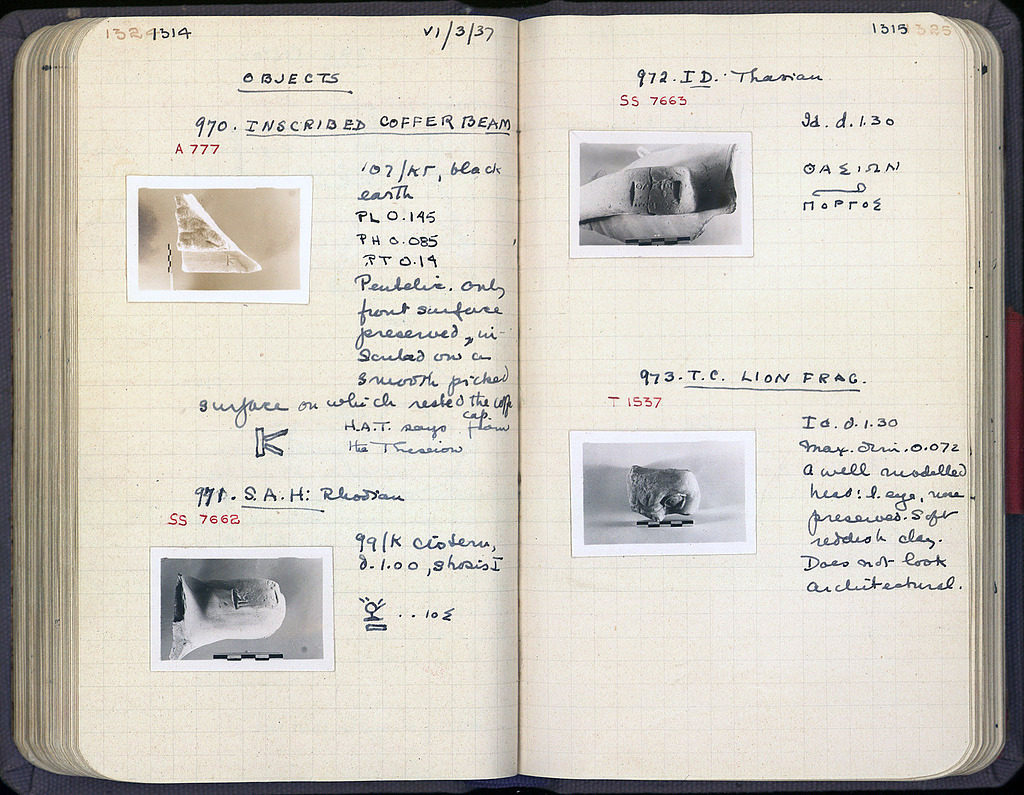 1324 1314
VI/3/37
OBJECTS
970. INSCRIBED COFFER BEAM
A 777
107/ΚΓ, black
earth
PL 0.145
PH 0.085
PT 0.14
Pentelic. only
front surface
preserved, in-
scribed on a
smooth picked
surface on which rested the coffer
cap.
H.A.T. says from
the Theseion
K
971. S.A.H: Rhodian
SS 7662
99/Κ cistern,
d. 1.00,
. . ΙΟΣ
1315 1325
972. ID. Thasian
SS 7663
Id. d. 1.30
ΘΑΣΙΩΝ
ΠΟΡΓΟΣ
973. T.C. LION FRAG.
T 1537
Id. d. 1.30
Max. dim. 0.072
A well modelled
head: l. eye, nose
preserved. Soft
reddish clay.
Does not look
architectural.